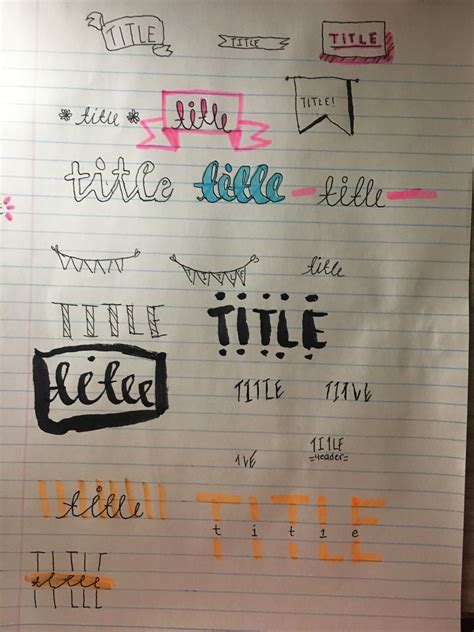 TITLE TITLE TITLE
title title TITLE!
title title title
title
TITLE TITLE
title TITLE
TITLE
=header=
title TITLE
title
TITLE
title